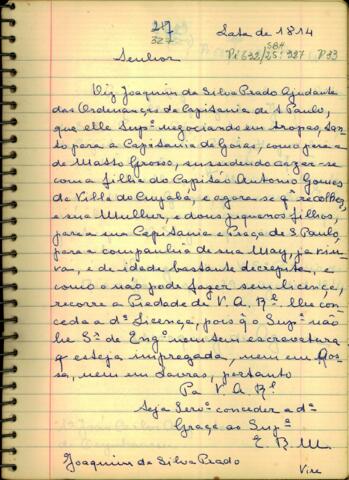 27
327
Data de 1814
Senhor
Diz Joaquim da Silva Prado Ajudante
das Ordenanças da Capitania de S. Paulo,
que elle Supᵉ negociando em tropas, tan
to para a Capitania de Goias, como para a
de Matto Grosso, sussedendo cazar-se
com a filha do Capitão Antonio Gomes
da Villa do Cuyabá, e agora se qʳ recolher,
e sua Mulher, e dous piquenos filhos,
para a sua Capitania e Praça de S. Paulo,
para a companhia de sua May, ja viu
va, e de idade bastante decrepita, e
como o não pode fazer sem licença,
recorre a Piedade de V. A. Rˡ lhe con
ceda a dª Licença, pois q̃ o Supᵉ não
he Sʳ de Engº nem tem escravatura
q esteja impregada, nem em Ros
sa, nem em Lavras, portanto
Pa V. A. Rˡ
Seja Servº conceder a dª
Graça ao Supᵉ
E. R. M.
Joaquim da Silva Prado
Vire